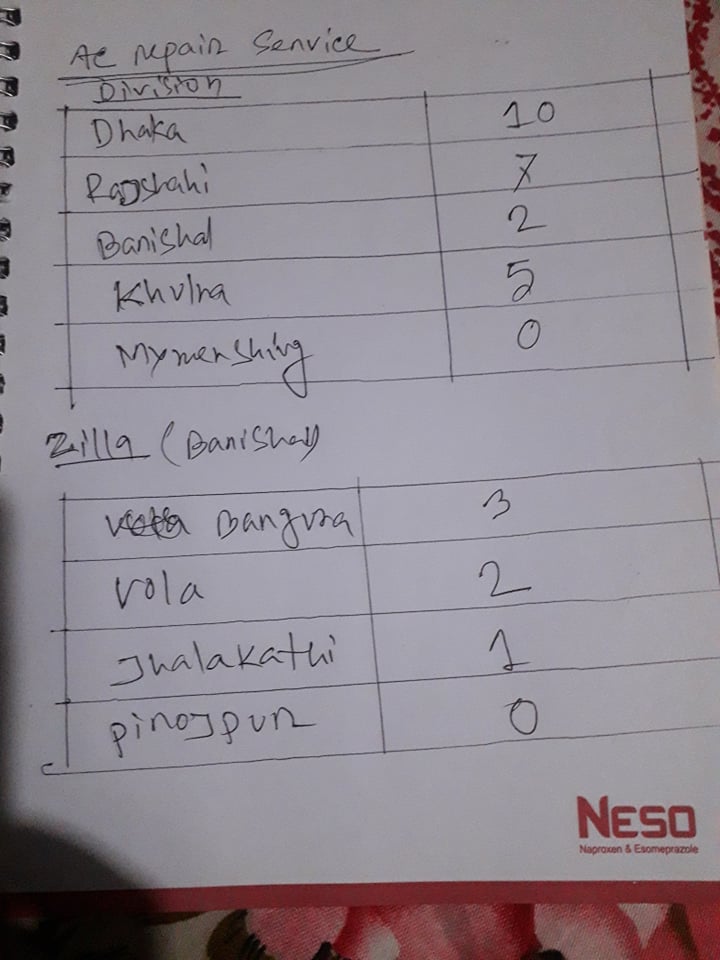 Ac repair Service
Division
Dhaka 10
Rajshahi 7
Barishal 2
Khulna 5
Mymenshing 0
Zilla (Barishal)
Barguna 3
Vola 2
Jhalakathi 1
pirojpur 0
NESO
Naproxen & Esomeprazole